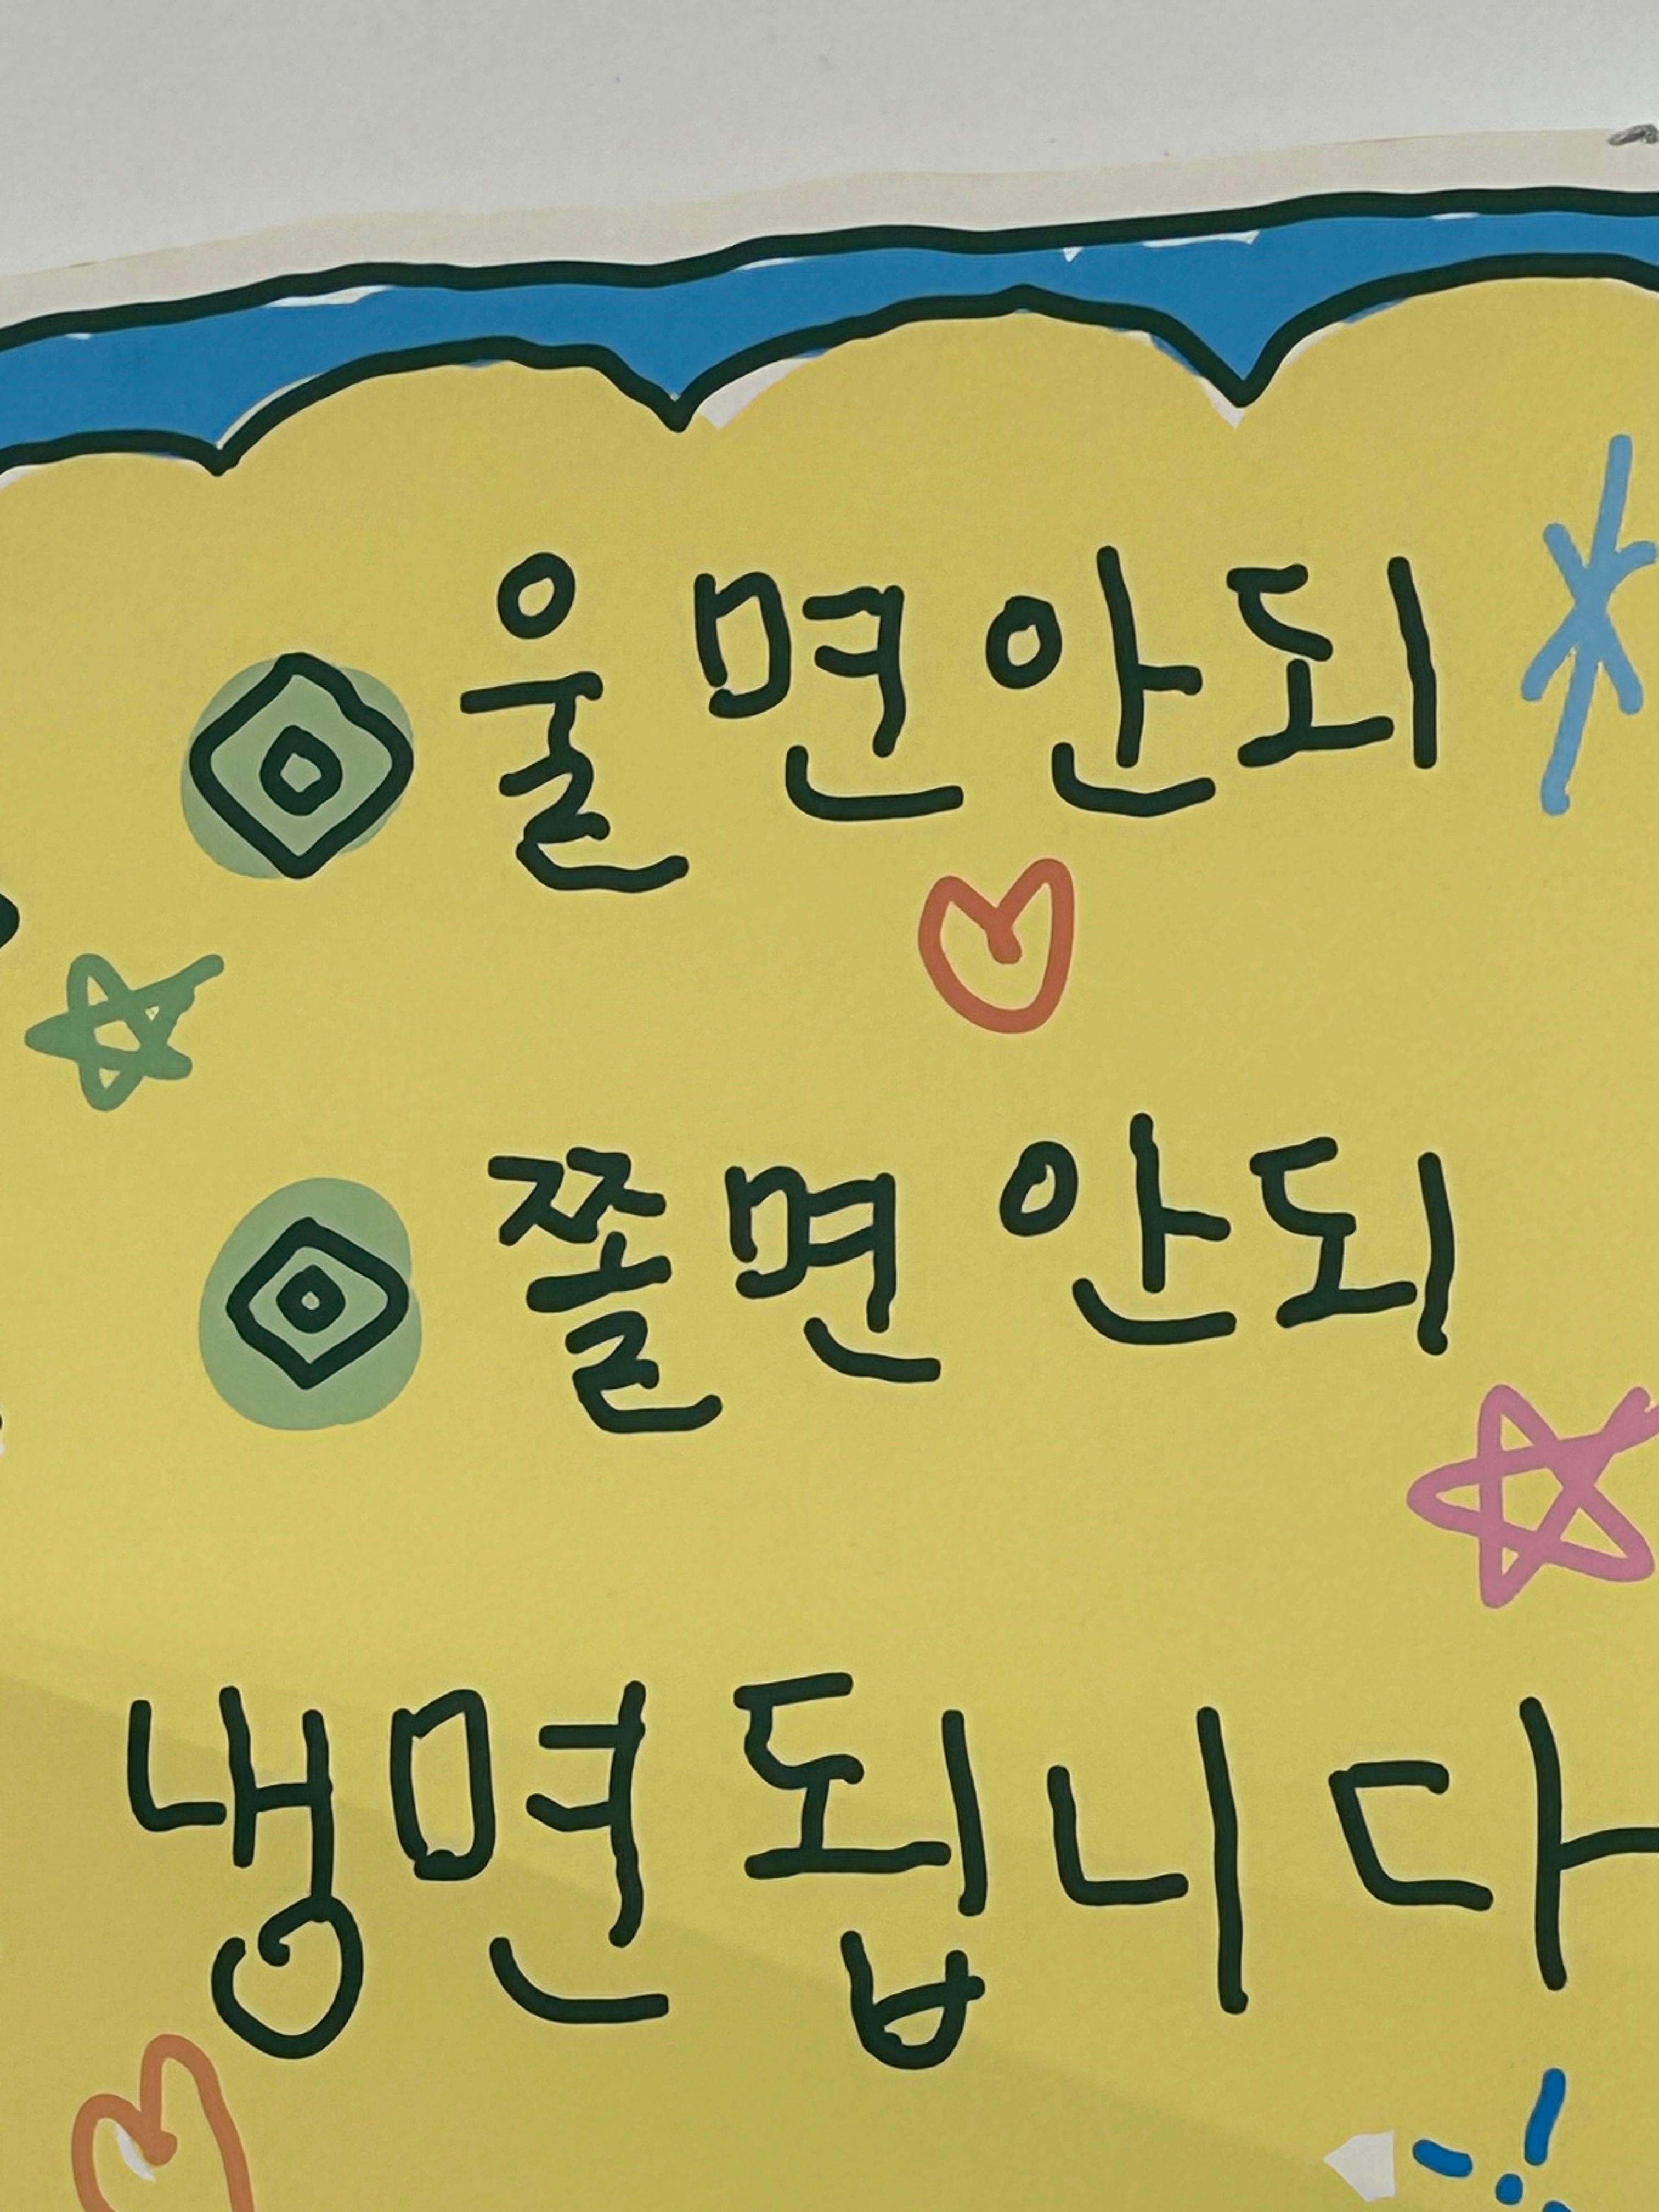 울면안되
쫄면 안되
냉면 됩니다